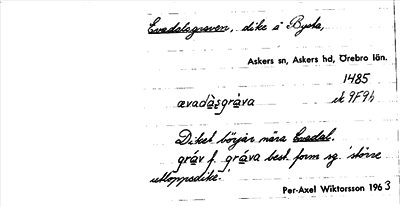 Evedalsgraven, dike å Bysta,
Askers sn, Askers hd, Örebro län.
1485
ek 9F9h
ævadàsgrȧva
Diket börjar nära Evedal.
gráv f. grȧva best. form sg. 'större
utloppsdike.'
Per-Axel Wiktorsson 1963